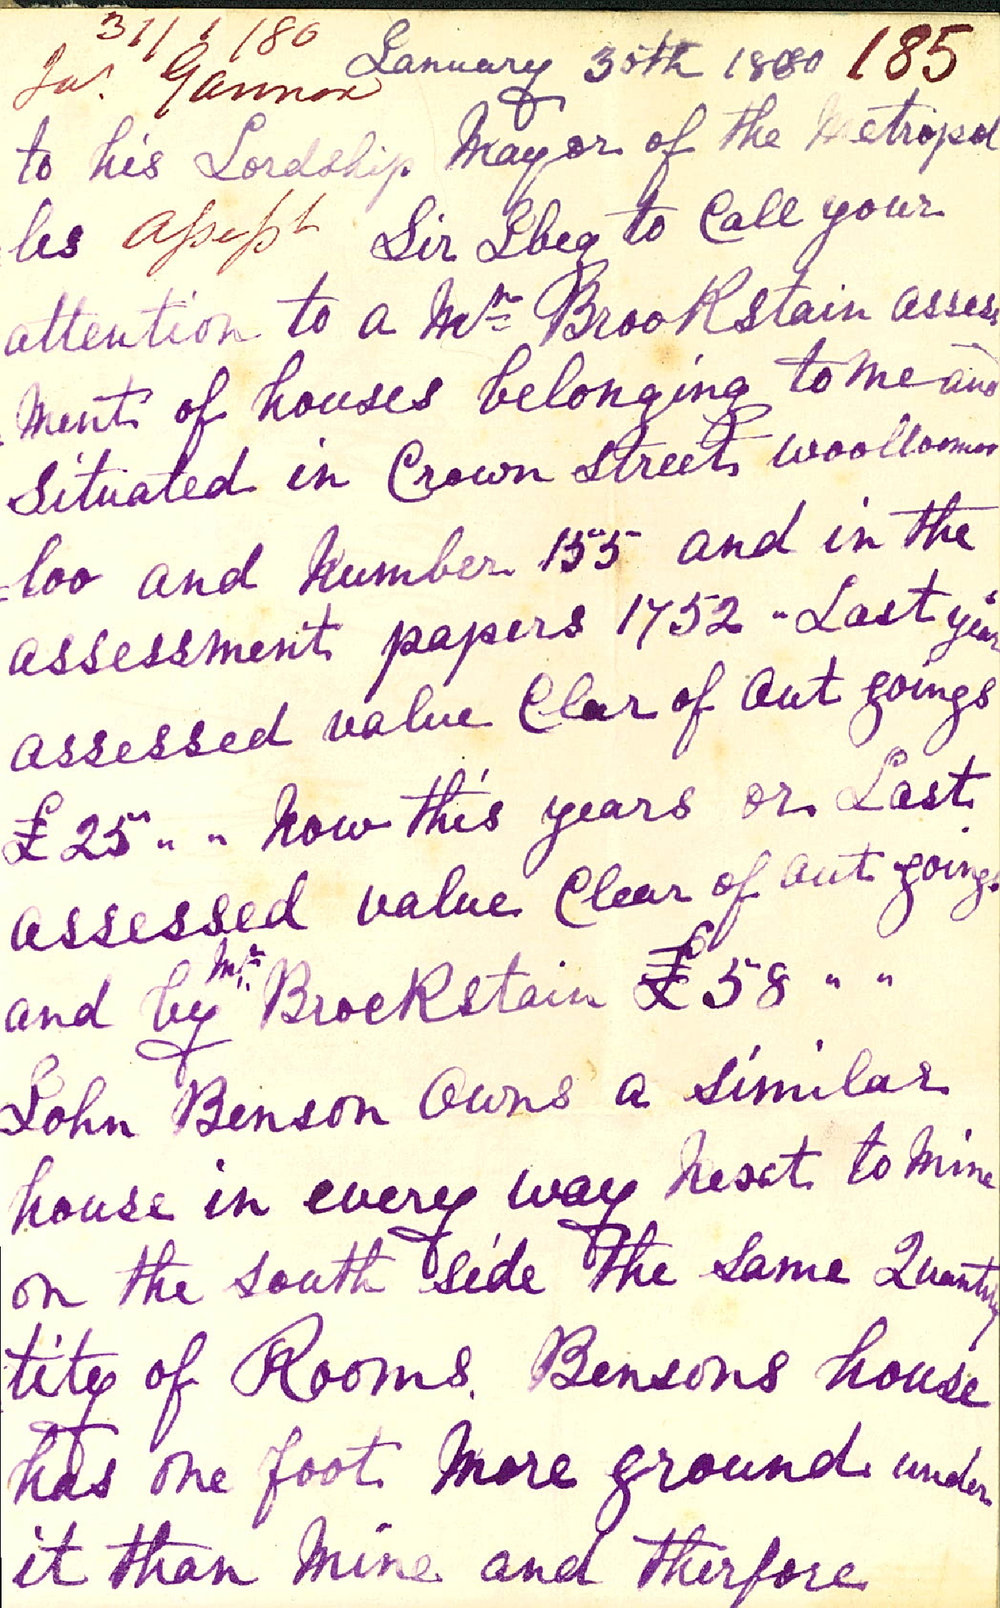 31/1/80
Jas. Gannon January 30th 1880 185
to his Lordship Mayor of the Metropol
lis Sir I beg to Call your
attention to a Mr Brookstain assess
Ment of houses belonging to Me and
Situated in Crown Street woolloomoo
=loo and Number 155 and in the
assessment papers 1752 " Last year
assessed value Clear of Out goings
£25 " " Now this years or Last
assessed value Clear of Out goings
and by Mr Brockstain £58 " "
John Benson Owns a similar
house in every way Next to Mine
on the south side the same Quanty
tity of Rooms. Bensons house
has one foot More ground under
it than Mine and therfore